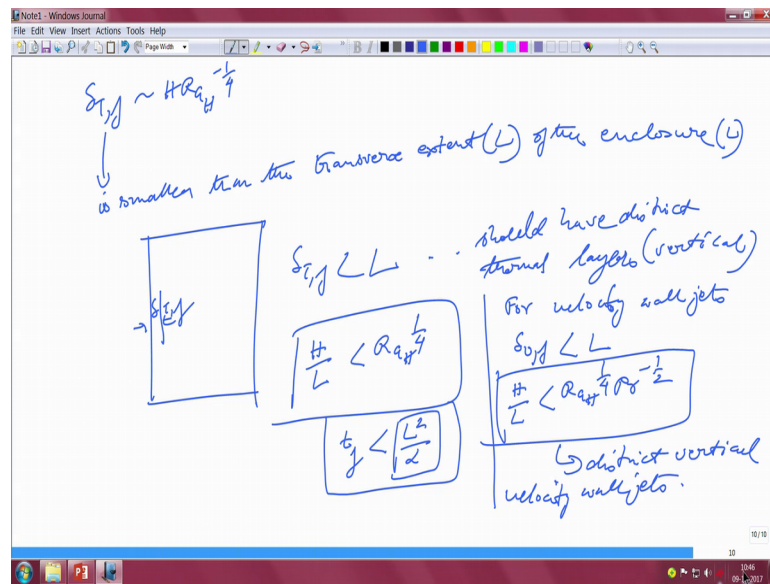 Note1 - Windows Journal
File Edit View Insert Actions Tools Help
Page Width
B I
δT,f ~ H RaH^-1/4
is smaller than the transverse extent (L) of the enclosure (L)
δT,f
δT,f < L .. should have distinct
thermal layers (vertical)
H/L < RaH^1/4
tf < L²/α
For velocity wall jets
δv,f < L
H/L < RaH^1/4 Pr^-1/2
↳ distinct vertical
velocity wall jets.
10/10
10
10:46